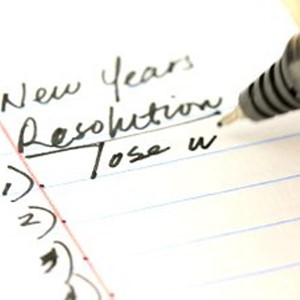 New Years
Resolution
1) Lose w
2)
3)
4)